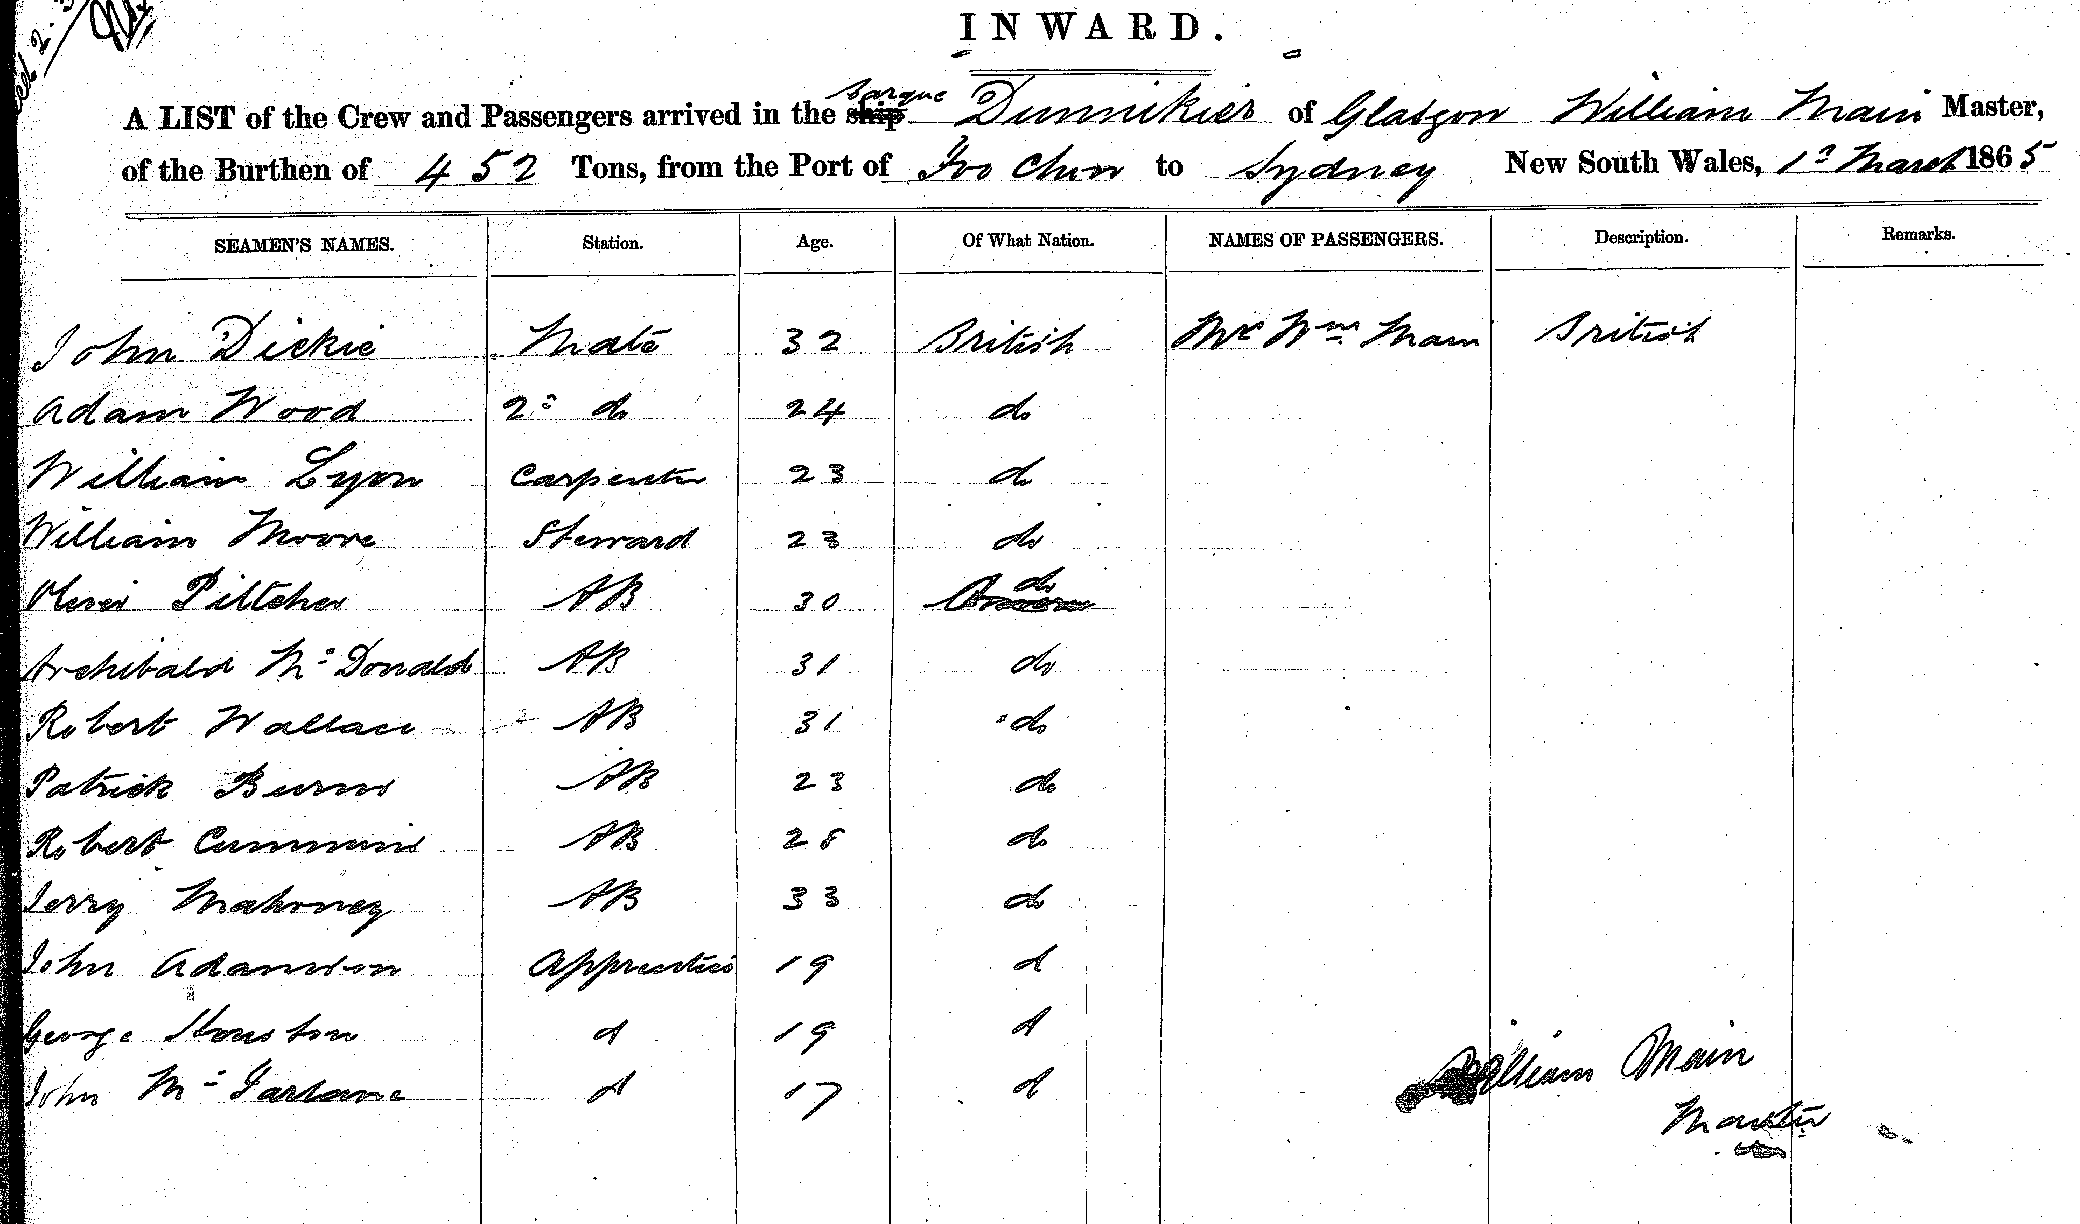 INWARD.
A LIST of the Crew and Passengers arrived in the barque Dunnikier of Glasgow William Main Master,
of the Burthen of 452 Tons, from the Port of Foo Chow to Sydney New South Wales, 1st March 1865
SEAMEN'S NAMES. Station. Age. Of What Nation. NAMES OF PASSENGERS. Description. Remarks.
John Dickie Mate 32 British Wm Main British
Adam Wood 2d do 24 do
William Lyon Carpenter 23 do
William Moore Steward 23 do
Oliver Piltcher AB 30 do
Archibald McDonald AB 31 do
Robert Wallace AB 31 do
Patrick Burns AB 23 do
Robert Cummins AB 28 do
Jerry Mahoney AB 33 do
John Adamson Apprentice 19 d
George Houston d 19 d
John McFarlane d 17 d
William Main
Master